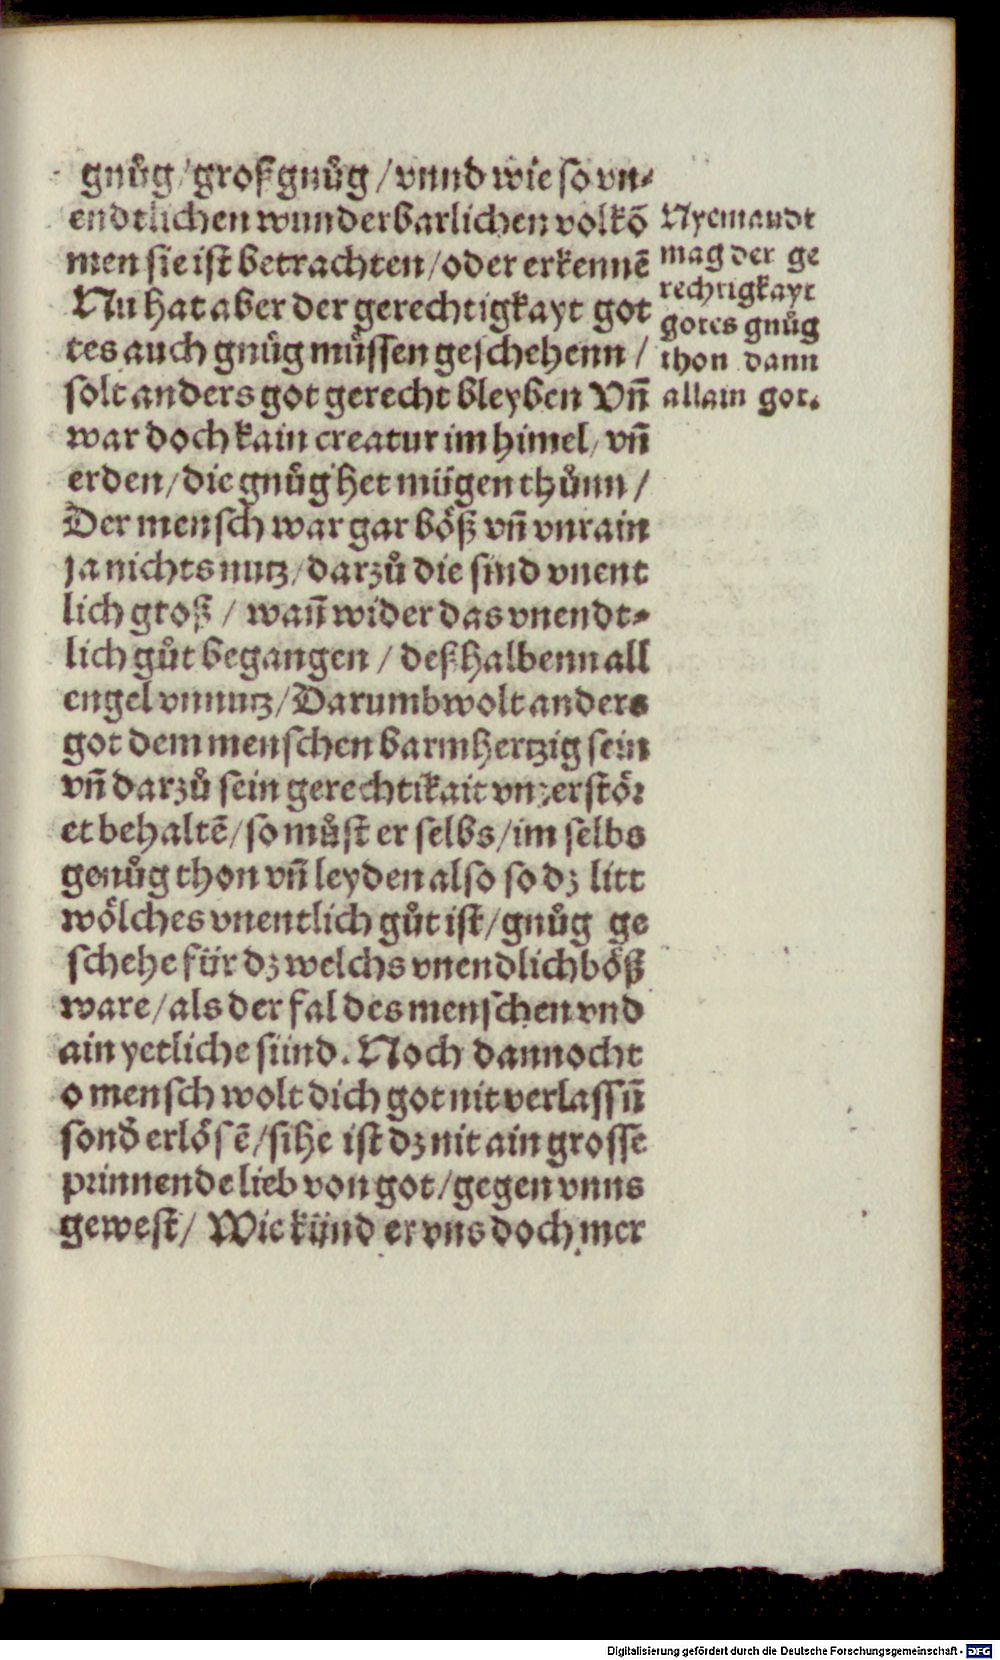 gnůg / groß gnůg / vnnd wie so vn⸗
endtlichen wunderbarlichen volkō
men sie ist betrachten / oder erkennē
Nu hat aber der gerechtigkayt got
tes auch gnůg müssen geschehenn /
solt anders got gerecht bleyben Vn̄
war doch kain creatur im himel / vn̄
erden / die gnůg het mügen thůnn /
Der mensch war gar böß vn̄ vnrain
ja nichts nutz / darzů die sind vnent
lich groß / wan̄ wider das vnendt⸗
lich gůt begangen / deßhalbenn all
engel vnnutz / Darumb wolt anders
got dem menschen barmhertzig sein
vn̄ darzů sein gerechtikait vnzerstör
et behaltē / so můst er selbs / im selbs
genůg thon vn̄ leyden also so dz litt
wölches vnentlich gůt ist / gnůg ge
schehe für dz welchs vnendlich böß
ware / als der fal des menschen vnd
ain yetliche sünd. Noch dannocht
o mensch wolt dich got nit verlassn̄
sonð erlösē / sihe ist dz nit ain grosse
prinnende lieb von got / gegen vnns
gewest / Wie künd er vns doch mer
Nyemandt
mag der ge
rechtigkayt
gotes gnůg
thon dann
allain got.
Digitalisierung gefördert durch die Deutsche Forschungsgemeinschaft - DFG